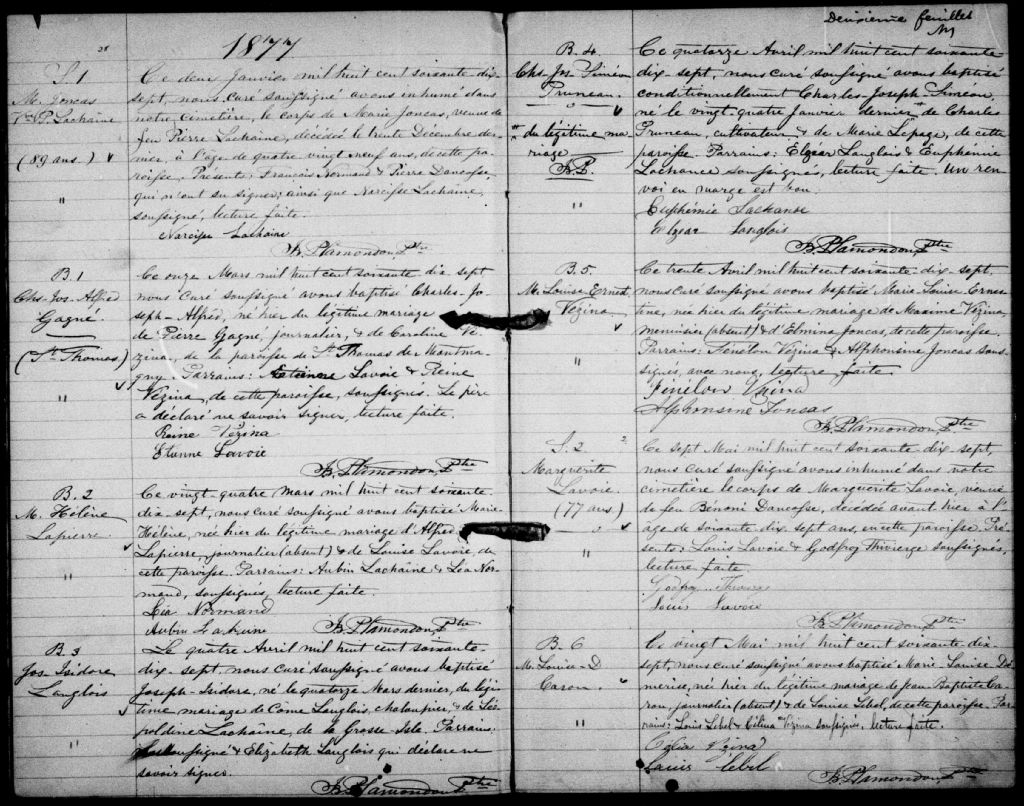 28
1877
S. 1
M. Joncas
Vve P. Lachaine
(89 ans.)
"
Ce deux Janvier mil huit cent soixante-dix-
sept, nous curé soussigné avons inhumé dans
notre cimetière, le corps de Marie Joncas, veuve de
feu Pierre Lachaine, décédée le trente Décembre der-
nier, à l'âge de quatre vingt neuf ans, de cette pa-
roisse. Présents: François Normand & Pierre Dancosse,
qui n'ont su signer, ainsi que Narcisse Lachaine
soussigné, lecture faite.
Narcisse Lachaine
B. Plamondon Ptre
B. 1
Chs. Jos. Alfred
Gagné.
(St Thomas)
"
Ce onze Mars mil huit cent soixante dix-sept
nous curé soussigné avons baptisé Charles-Jo-
seph-Alfred, né hier du légitime mariage
de Pierre Gagné, journalier, & de Caroline Vé-
zina, de la paroisse de St Thomas de Montma-
gny. Parrains: Etienne Lavoie & Reine
Vézina, de cette paroisse, soussignés. Le père
a déclaré ne savoir signer, lecture faite.
Reine Vézina
Etienne Lavoie
B. Plamondon Ptre
B. 2
M. Hélène
Lapierre.
"
Ce vingt-quatre mars mil huit cent soixante
dix-sept, nous curé soussigné avons baptisé Marie-
Hélène, née hier du légitime mariage d'Alfred
Lapierre, journalier (absent) & de Louise Lavoie, de
cette paroisse. Parrains: Aubin Lachaine & Léa Nor-
mand, soussignés, lecture faite.
Léa Normand
Aubin Lachaine
B. Plamondon Ptre
B. 3
Jos. Isidore
Langlois
"
Le quatre Avril mil huit cent soixante-
dix-sept, nous curé soussigné avons baptisé
Joseph-Isidore, né le quatorze Mars dernier, du légi-
time mariage de Côme Langlois, chaloupier, & de Léo-
poldine Lachaine, de la Grosse Isle. Parrains:
soussigné & Elizabeth Langlois qui déclare ne
savoir signer.
B. Plamondon Ptre
Deuxième feuillet
B. 4.
Chs. Jos. Siméon
Pruneau.
# du légitime ma-
riage
B.P.
"
Ce quatorze Avril mil huit cent soixante
dix-sept, nous curé soussigné avons baptisé
conditionnellement Charles-Joseph-Simeon,
né le vingt-quatre janvier dernier # de Charles
Pruneau, cultivateur & de Marie Lepage, de cette
paroisse. Parrains: Elzéar Langlois & Euphémie
Lachance soussignés, lecture faite. Un ren-
voi en marge est bon.
Euphémie Lachance
Elzear Langlois
B. Plamondon Ptre
B. 5.
M. Louise Ernest.
Vézina
"
Ce trente Avril mil huit cent soixante-dix-sept,
nous curé soussigné avons baptisé Marie-Louise-Ernes-
tine, née hier du légitime mariage de Maxime Vézina,
menuisier (absent) & d'Elmina Joncas, de cette paroisse.
Parrains: Fénélon Vézina & Alphonsine Joncas sous-
signés, avec nous, lecture faite.
Fénélon Vézina
Alphonsine Joncas
B. Plamondon Ptre
S. 2
2
Marguerite
Lavoie.
(77 ans.)
"
Ce sept Mai mil huit cent soixante dix-sept,
nous curé soussigné avons inhumé dans notre
cimetière le corps de Marguerite Lavoie, veuve
de feu Benoni Dancosse, décédée avant hier à l'â-
age de soixante dix sept ans, en cette paroisse. Pré-
sents: Louis Lavoie & Godfroy Thivierge soussignés,
lecture faite.
Godfroy Thivierge
Louis Lavoie
B. Plamondon Ptre
B. 6
M. Louise-D
Caron.
"
Ce vingt Mai mil huit cent soixante dix-
sept, nous curé soussigné avons baptisé Marie-Louise-Dé-
merise, née hier du légitime mariage de Jean Baptiste Ca-
ron, journalier (absent) & de Louise Lebel, de cette paroisse. Par-
rains: Louis Lebel & Célina Vézina soussignés, lecture faite.
Célia Vézina
Louis Lebel
B. Plamondon Ptre